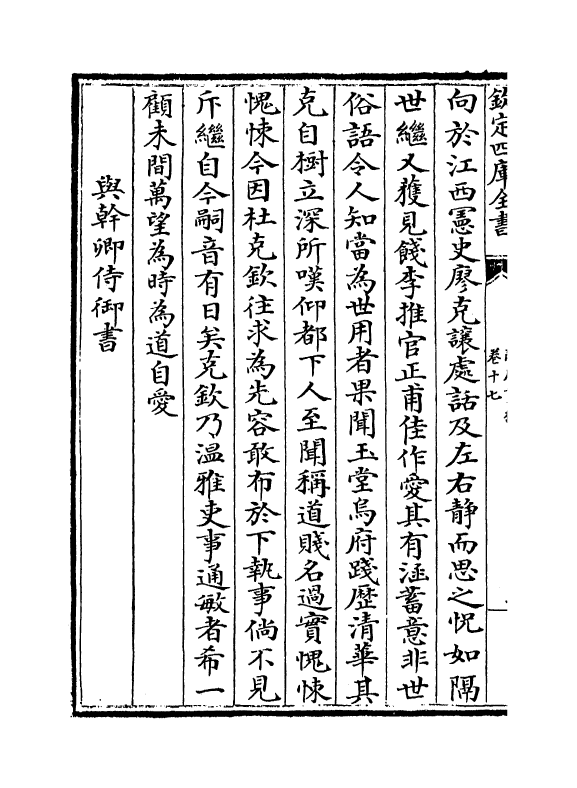 欽定四庫全書
卷十七
向於江西憲史廖克讓處話及左右静而思之怳如隔
世繼又獲見餞李推官正甫佳作愛其有涵蓄意非世
俗語令人知當為世用者果聞玉堂烏府踐歴清華其
克自樹立深所嘆仰都下人至聞稱道賤名過實愧悚
愧悚今因杜克欽往求為先容敢布於下執事倘不見
斥繼自今嗣音有日矣克欽乃温雅吏事通敏者希一
顧未間萬望為時為道自愛
與幹卿侍御書